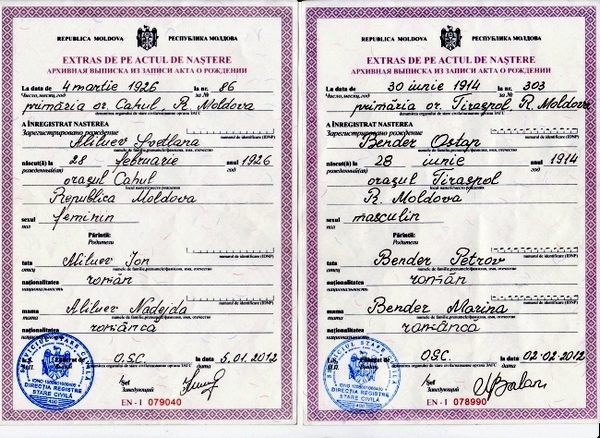 REPUBLICA MOLDOVA РЕСПУБЛИКА МОЛДОВА
EXTRAS DE PE ACTUL DE NAŞTERE
АРХИВНАЯ ВЫПИСКА ИЗ ЗАПИСИ АКТА О РОЖДЕНИИ
La data de 4 martie 1926 la nr. 86
Число, месяц, год за №
primăria or. Cahul, R. Moldova
A ÎNREGISTRAT NASTEREA
Зарегистрировано рождение
Aliluev Svetlana
născut(ă) la 28 februarie anul 1926
рожденный(ая) год
oraşul Cahul
Republica Moldova
sexul
пол
feminin
Părinţii:
Родители
tata Aliluev Ion
отец
naţionalitatea român
национальность
mama Aliluev Nadejda
мать
naţionalitatea româncă
национальность
O.S.C. la data 5.01.2012
дата
Şef
Заведующий
SERVICIUL STARE CIVILĂ
DIRECŢIA REGISTRE
STARE CIVILĂ
EN - I 079040
REPUBLICA MOLDOVA РЕСПУБЛИКА МОЛДОВА
EXTRAS DE PE ACTUL DE NAŞTERE
АРХИВНАЯ ВЫПИСКА ИЗ ЗАПИСИ АКТА О РОЖДЕНИИ
La data de 30 iunie 1914 la nr. 303
Число, месяц, год за №
primăria or. Tiraspol, R. Moldova
A ÎNREGISTRAT NASTEREA
Зарегистрировано рождение
Bender Ostap
născut(ă) la 28 iunie anul 1914
рожденный(ая) год
oraşul Tiraspol
R. Moldova
sexul
пол
masculin
Părinţii:
Родители
tata Bender Petrov
отец
naţionalitatea român
национальность
mama Bender Marina
мать
naţionalitatea româncă
национальность
O.S.C. la data 02.02.2012
дата
Şef
Заведующий
SERVICIUL STARE CIVILĂ
DIRECŢIA REGISTRE
STARE CIVILĂ
EN - I 078990